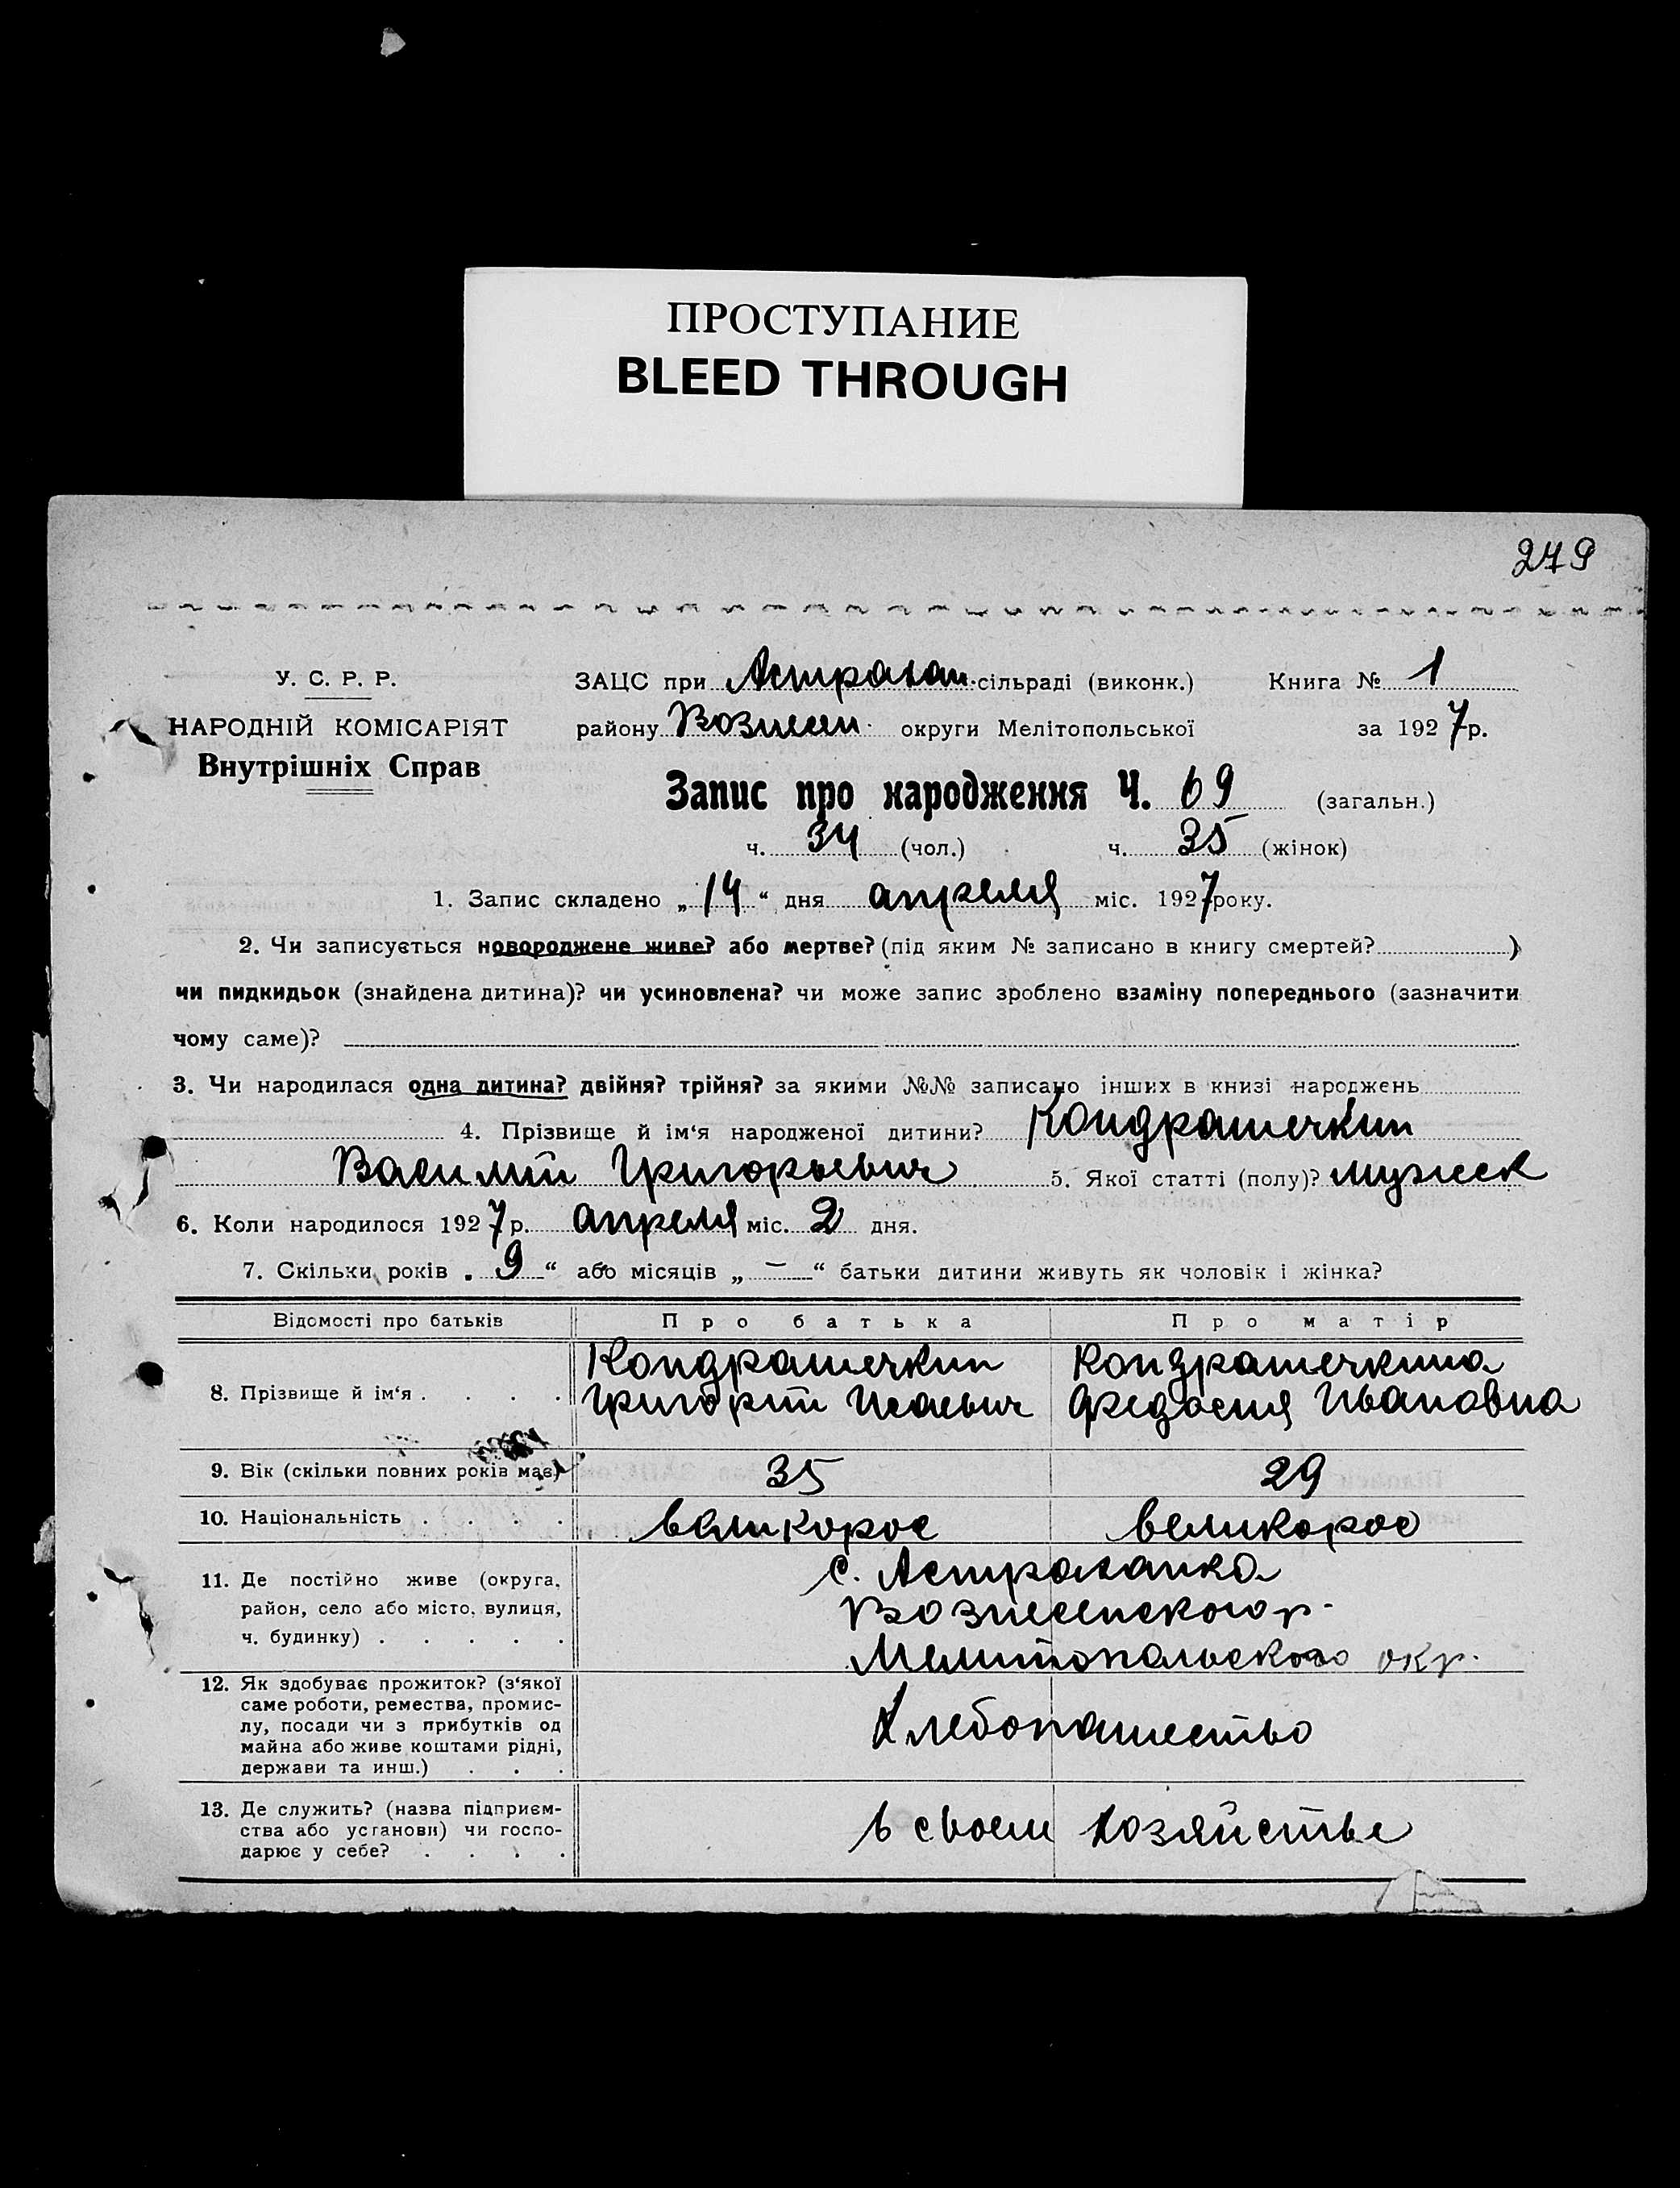 ПРОСТУПАНИЕ
BLEED THROUGH
279
У. С. Р. Р.
НАРОДНІЙ КОМІСАРІЯТ
Внутрішніх Справ
ЗАЦС при Астрахан. сільраді (виконк.) Книга № 1
району Вознесен. округи Мелітопольської за 1927 р.
Запис про народження Ч. 69 (загальн.)
ч. 34 (чол.) ч. 35 (жінок)
1. Запис складено „14“ дня апреля міс. 1927 року.
2. Чи записується новороджене живе? або мертве? (під яким № записано в книгу смертей? )
чи пидкидьок (знайдена дитина)? чи усиновлена? чи може запис зроблено взаміну попереднього (зазначити
чому саме)?
3. Чи народилася одна дитина? двійня? трійня? за якими №№ записано інших в книзі народжень
4. Прізвище й ім‘я народженої дитини? Кондрашечкин
Василий Григорьевич 5. Якої статті (полу)? мужск
6. Коли народилося 1927 р. апреля міс. 2 дня.
7. Скільки років „ 9 “ або місяців „ — “ батьки дитини живуть як чоловік і жінка?
Відомості про батьків Про батька Про матір
8. Прізвище й ім‘я . . . .
Кондрашечкин
Григорий Исаевич
Кондрашечкина
Федосия Ивановна
9. Вік (скільки повних років має) 35 29
10. Національність . . . . великорос великорос
11. Де постійно живе (округа,
район, село або місто, вулиця,
ч. будинку) . . . . .
с. Астраханка
Вознесенского р.
Мелитопольского окр.
12. Як здобуває прожиток? (з‘якої
саме роботи, ремества, промис-
лу, посади чи з прибутків од
майна або живе коштами рідні,
держави та инш.) . . .
Хлебопашество
13. Де служить? (назва підприєм-
ства або установи) чи госпо-
дарює у себе? . . . .
в своем хозяйстве